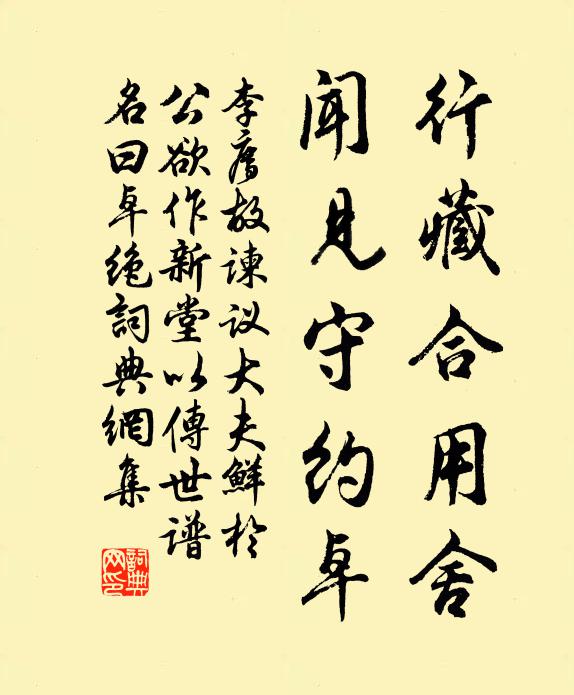 行藏合用舍
闻见守约卓
李廌故谏议大夫鮮于
公欲作新堂以傳世谱
名曰卓绝詞典網集
詞典